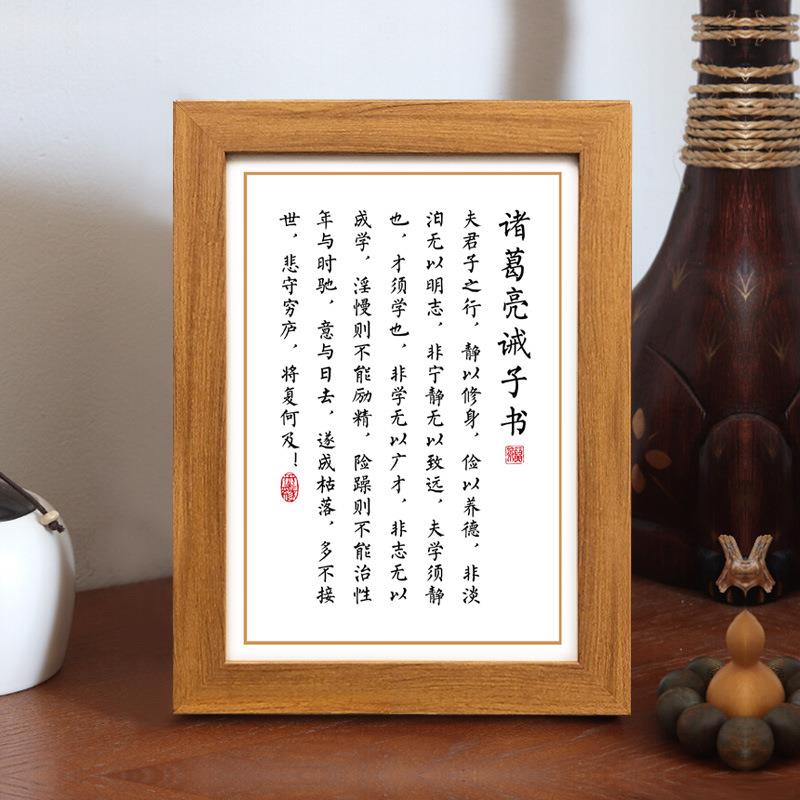 诸葛亮诫子书
夫君子之行，静以修身，俭以养德，非淡
泊无以明志，非宁静无以致远，夫学须静
也，才须学也，非学无以广才，非志无以
成学，淫慢则不能励精，险躁则不能治性
年与时驰，意与日去，遂成枯落，多不接
世，悲守穷庐，将复何及！